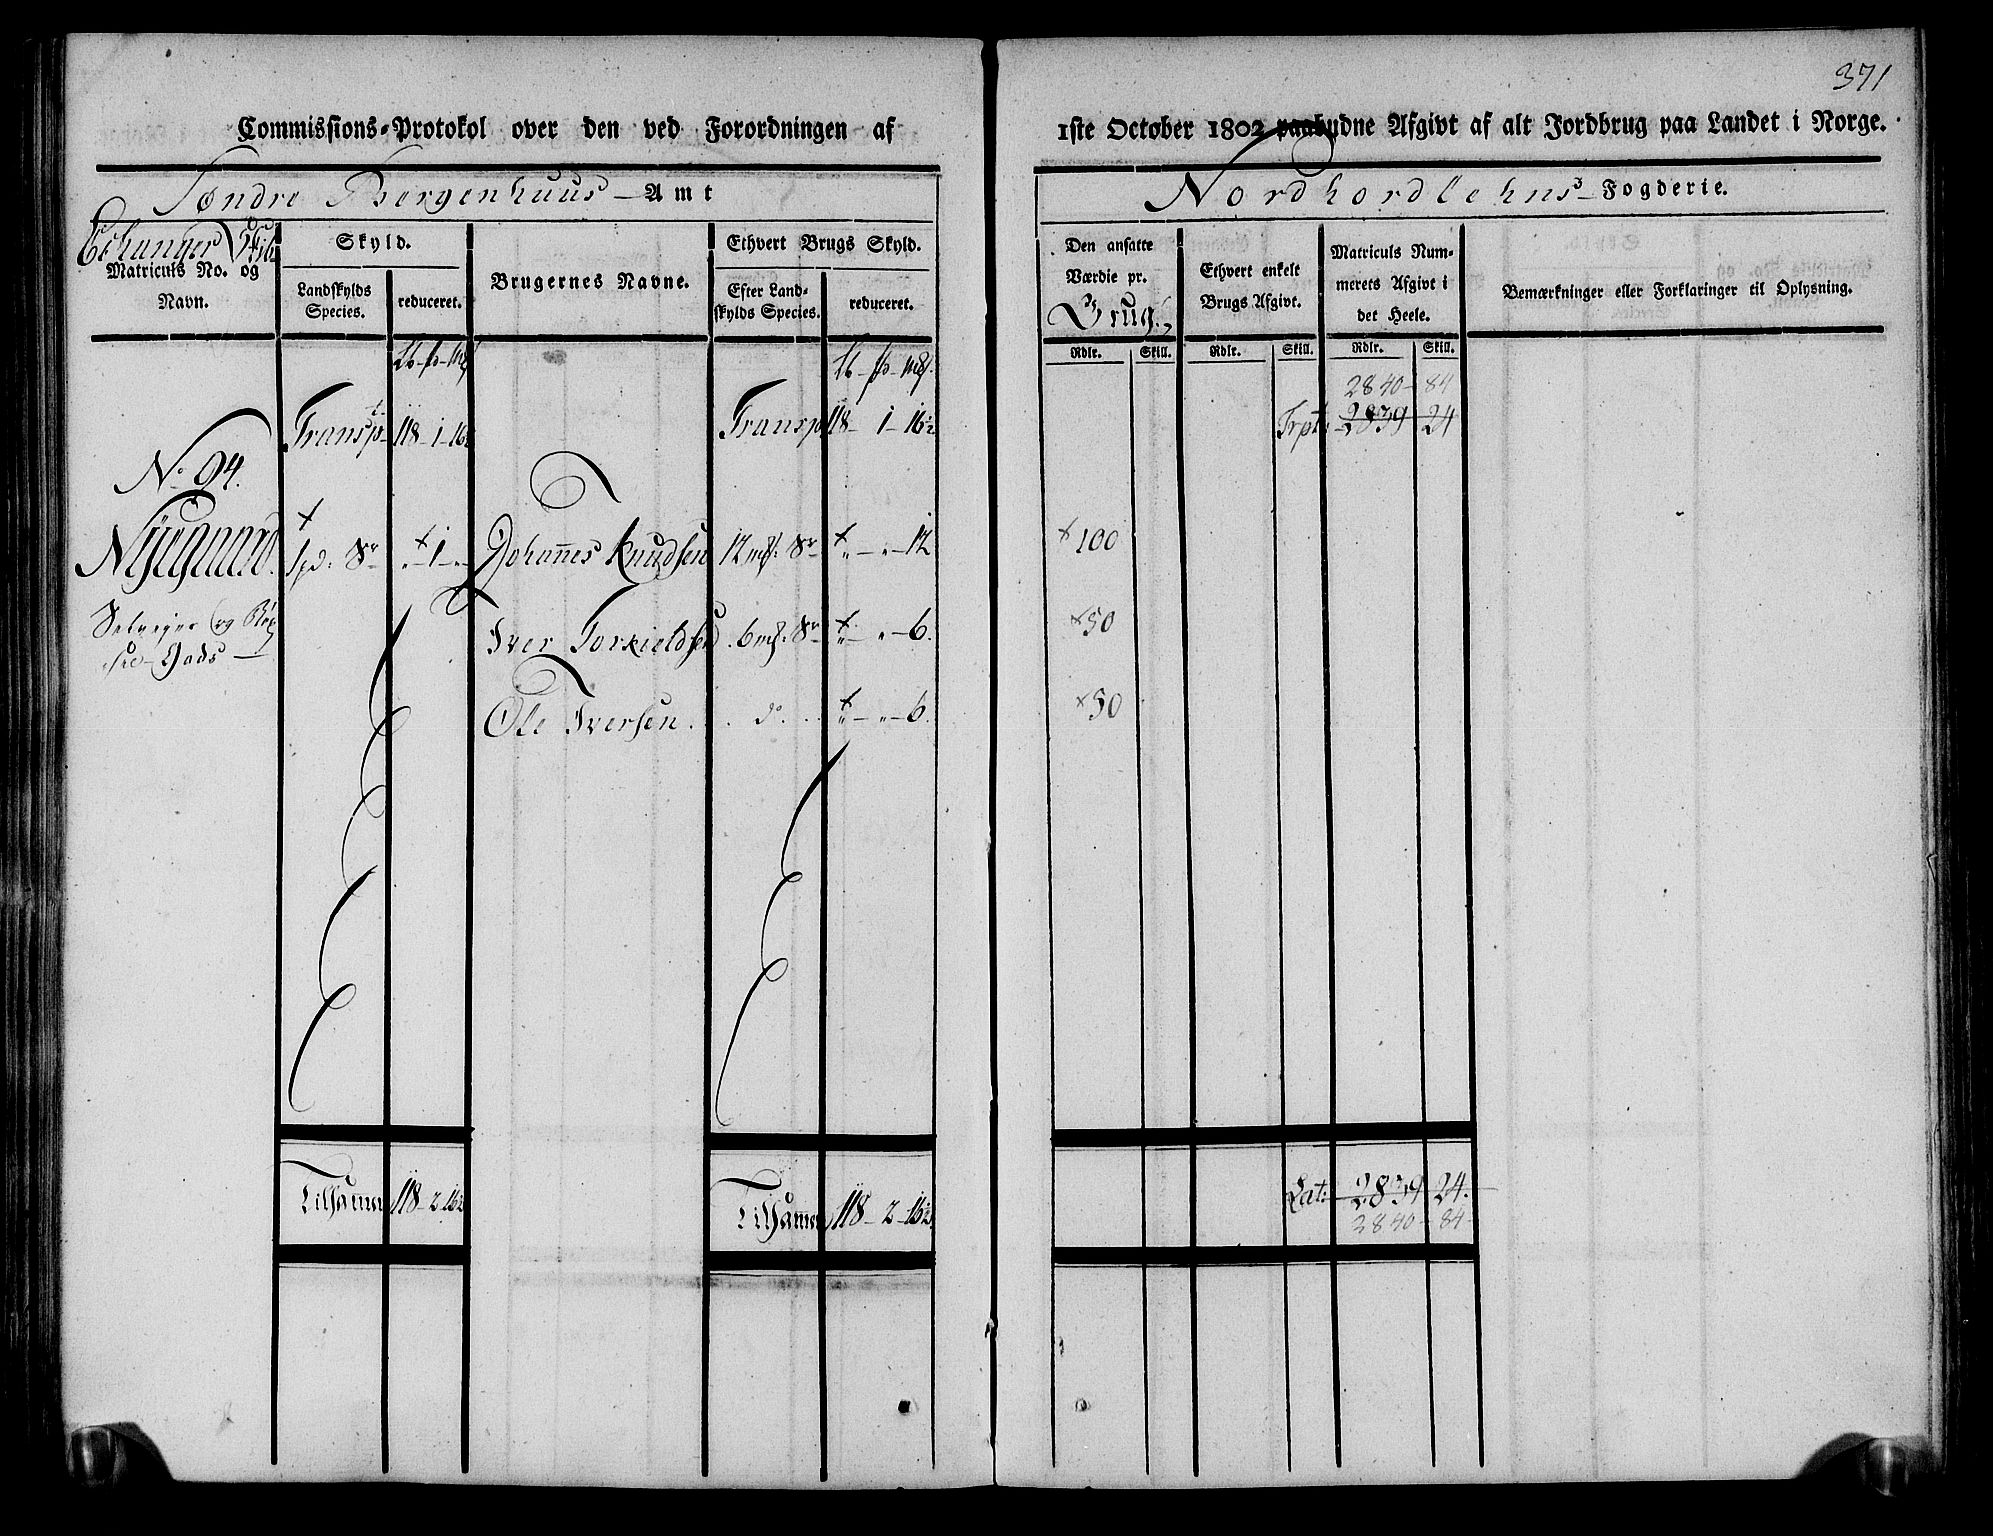 371
Commissions-Protokol over den ved Forordningen af 1ste October 1802 paabudne Afgivt af alt Jordbrug paa Landet i Norge.
Søndre Bergenhuus Amt Nordhordlehns Fogderie.
Echanger
Matriculs No. og Navn.
Skyld.
Landskylds Species.
reduceret.
Brugernes Navne.
Ethvert Brugs Skyld.
Efter Landskylds Species.
reduceret.
Den ansatte Værdie pr. Brug.
Ethvert enkelt Brugs Afgivt.
Matriculs Nummerets Afgivt i det Heele.
Bemærkninger eller Forklaringer til Oplysning.
Rdlr. Skill. Rdlr. Skill. Rdlr. Skill.
2840 - 84
Transpt 118 - 1 - 16½ Transpt 118 - 1 - 16½ Trpt: 2839 24
No 94.
Nÿegaard. 1 pd: Sr „ - 1 - „ Johannes Knudsen 12 mk: Sr „ - „ - 12 100
Selveyer og
Gods
Iver Torkieldsen 6 mk: Sr „ - „ - 6. 50
Ole Iversen . . do . . „ - „ - 6. 50
Tilsamen 118 - 2 - 16½ Tilsamen 118 - 2 - 16½ Lat: 2839 24.
2840 - 84